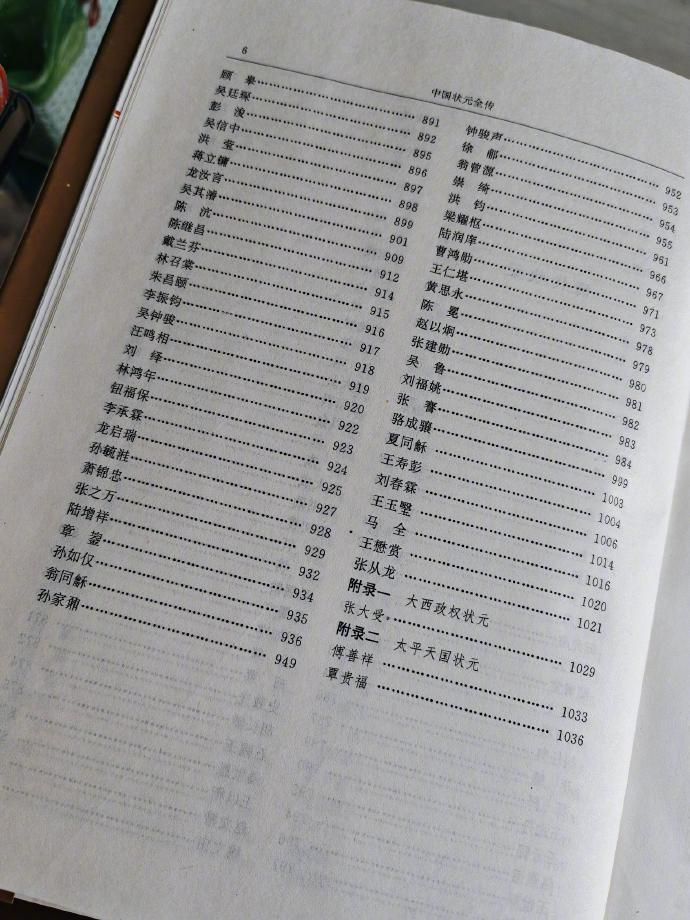 6
中国状元全传
顾 皋……891
吴廷琛……892
彭 浚……895
吴信中……896
洪 莹……897
蒋立镛……898
龙汝言……899
吴其濬……901
陈 沆……909
陈继昌……912
戴兰芬……914
林召棠……915
朱昌颐……916
李振钧……917
吴钟骏……918
汪鸣相……919
刘 绎……920
林鸿年……922
钮福保……923
李承霖……924
龙启瑞……925
孙毓溎……927
萧锦忠……928
张之万……929
陆增祥……932
章 鋆……934
孙如仅……935
翁同龢……936
孙家鼐……949
钟骏声……952
徐 郙……953
翁曾源……954
崇 绮……955
洪 钧……961
梁耀枢……966
陆润庠……967
曹鸿勋……971
王仁堪……973
黄思永……978
陈 冕……979
赵以炯……980
张建勋……981
吴 鲁……982
刘福姚……983
张 謇……984
骆成骧……999
夏同龢……1003
王寿彭……1004
刘春霖……1006
王玉璧……1014
马 全……1016
王懋赏……1020
张从龙……1021
附录一 大西政权状元
张大受……1029
附录二 太平天国状元
傅善祥……1033
覃贵福……1036